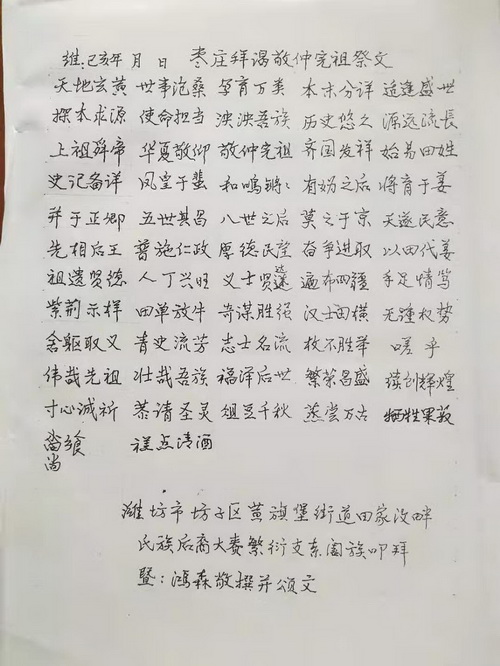 维:己亥年 月 日 枣庄拜谒敬仲完祖祭文
天地玄黄 世事沧桑 孕育万类 本末分详 适逢盛世
探本求源 使命担当 泱泱吾族 历史悠久 源远流長
上祖舜帝 华夏敬仰 敬仲完祖 齐国发祥 始易田姓
史记备详 凤皇于蜚 和鸣锵: 有妫之后 将育于姜
并于正卿 五世其昌 八世之后 莫之于京 天遂民意
先相后王 普施仁政 厚德民望 奋争进取 以田代姜
祖遗贤德 人丁兴旺 义士贤达 遍布四疆 手足情笃
紫荆示样 田单放牛 奇谋胜强 汉士田横 无踵权势
舍躯取义 青史流芳 志士名流 枚不胜举 嗟乎
伟哉先祖 壮哉吾族 福泽后世 繁荣昌盛 续创辉煌
寸心诚祈 恭请圣灵 俎豆千秋 蒸尝万古 牺牲果蔬
尚飨 糕点清酒
尚
潍坊市坊子区黄旗堡街道田家汶畔
氏族后裔大娄繁衍支系阖族叩拜
暨:鸿森敬撰并颂文